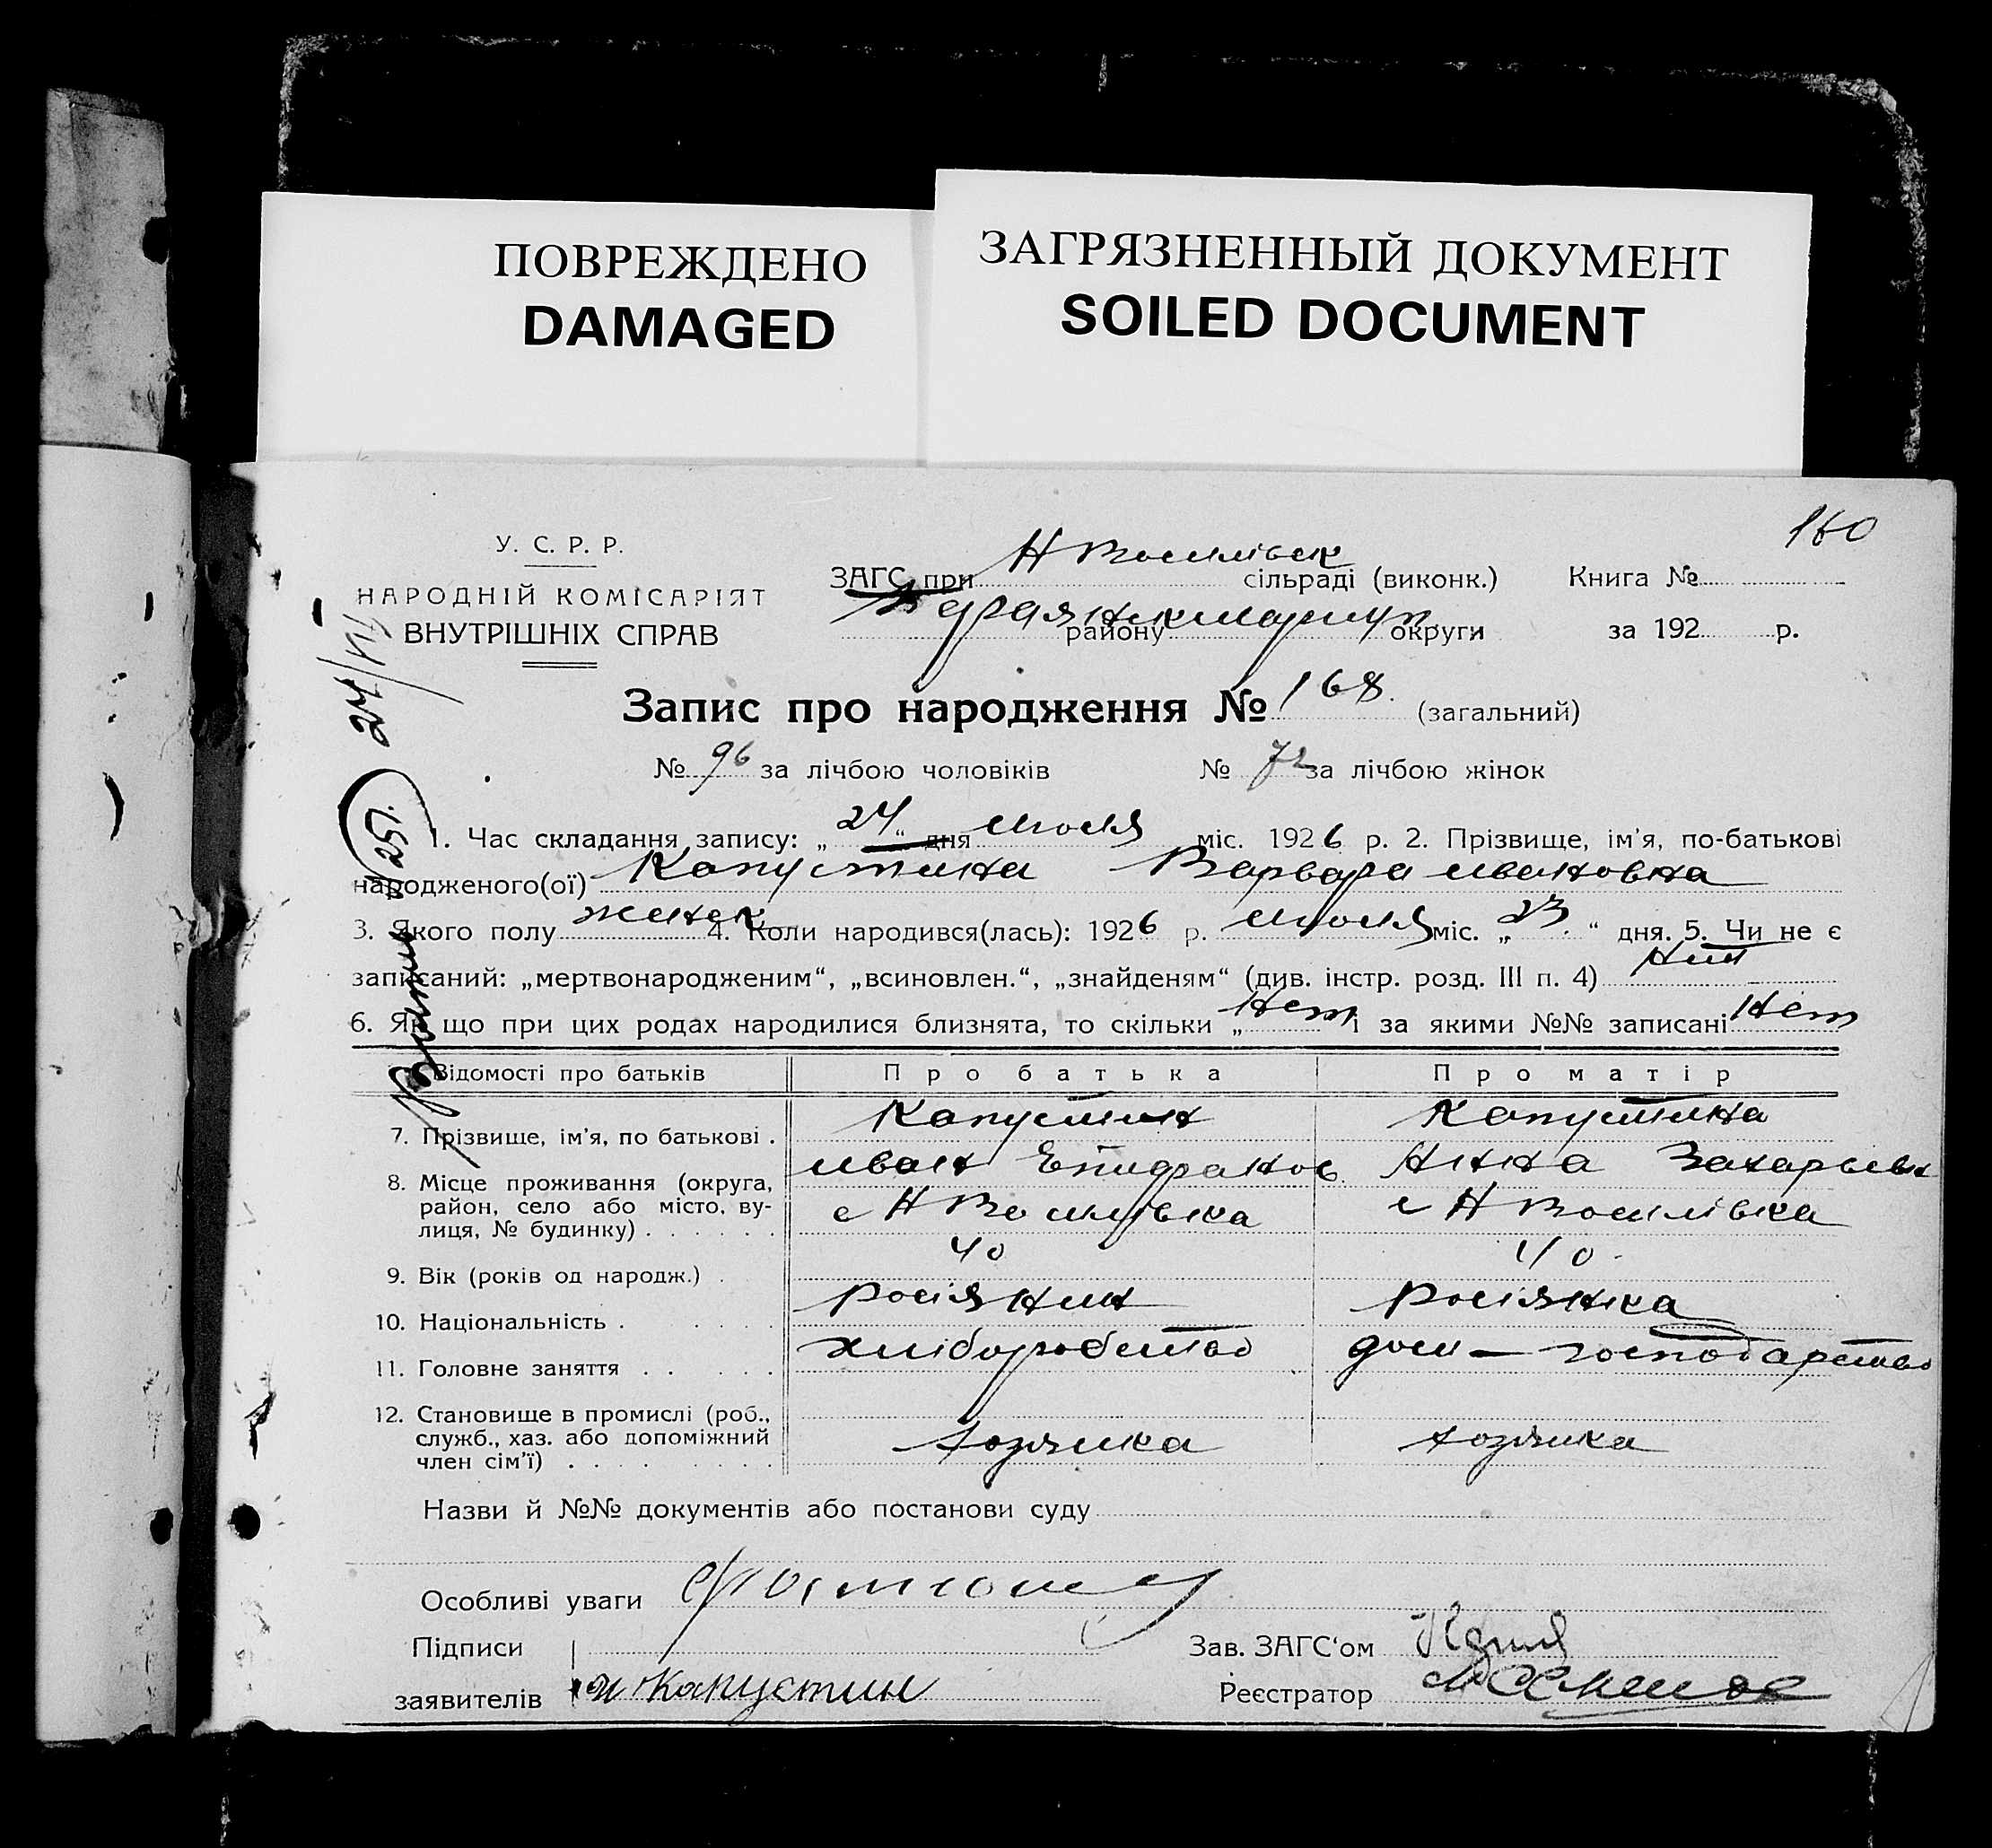 ПОВРЕЖДЕНО
DAMAGED
ЗАГРЯЗНЕННЫЙ ДОКУМЕНТ
SOILED DOCUMENT
160
У. С. Р. Р.
НАРОДНІЙ КОМІСАРІЯТ
ВНУТРІШНІХ СПРАВ
ЗАГС при Н Василівск сільраді (виконк.) Книга №
району округи за 192 р.
Запис про народження № 168. (загальний)
№ 96 за лічбою чоловіків № 72 за лічбою жінок
1. Час складання запису: „24“ дня июля міс. 1926 р. 2. Прізвище, ім'я, по-батькові
народженого(ої) Капустина Варвара Ивановна
3. Якого полу женск 4. Коли народився(лась): 1926 р. июля міс. „23.“ дня. 5. Чи не є
записаний: „мертвонародженим“, „всиновлен.“, „знайденям“ (див. інстр. розд. III п. 4)
6. Як що при цих родах народилися близнята, то скільки „Нет і за якими №№ записані Нет
Відомості про батьків Про батька Про матір
7. Прізвище, ім'я, по батькові . Капустин Капустина
Иван Епифанов. Анна Захарьевн
8. Місце проживання (округа, район, село або місто, вулиця, № будинку) . . . . . . с Н Василівка с Н Василівка
9. Вік (років од народж.) . 40 40
10. Національність . . . . . Росіянин Росіянка
11. Головне заняття . . . . . хліборобство дом — господарство
12. Становище в промислі (роб., служб., хаз. або допоміжний член сім'ї) . . . . . . . хозяика хозяика
Назви й №№ документів або постанови суду
Особливі уваги
Підписи Зав. ЗАГС'ом
заявителів и Капустин Реєстратор